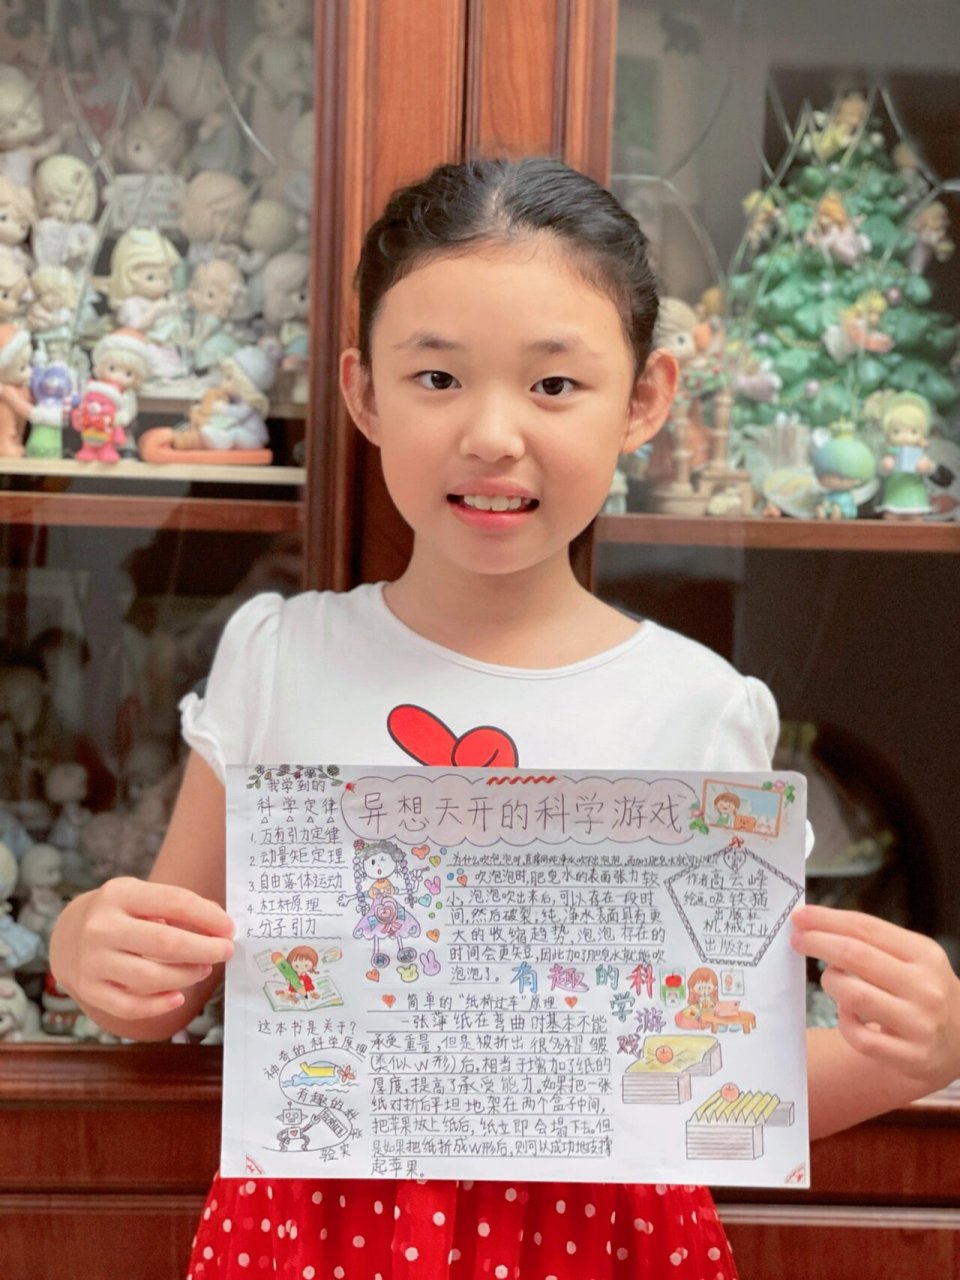 异想天开的科学游戏
我学到的
科学定律
1. 万有引力定律
2 动量矩定理
3. 自由落体运动
4. 杠杆原理
5. 分子引力
这本书是关于?
神奇的科学原理
有趣的科学
实验
为什么吹泡泡时,直接用纯净水吹不出泡泡,而加了肥皂水就可以呢?
吹泡泡时,肥皂水的表面张力较
小,泡泡吹出来后,可以存在一段时
间,然后破裂,纯净水表面具有更
大的收缩趋势,泡泡存在的
时间会更短,因此加了肥皂水就能吹
泡泡了。
作者高云峰
绘画吸铁猫
出版社
机械工业
出版社
有趣的科
学游
戏
简单的“纸桥过车”原理
一张薄纸在弯曲时基本不能
承受重量,但是被折出很多褶皱
(类似W形)后,相当于增加了纸的
厚度,提高了承受能力,如果把一张
纸对折后平坦地架在两个盒子中间,
把苹果放上纸后,纸立即会塌下去。但
是如果把纸折成W形后,则可以成功地支撑
起苹果。